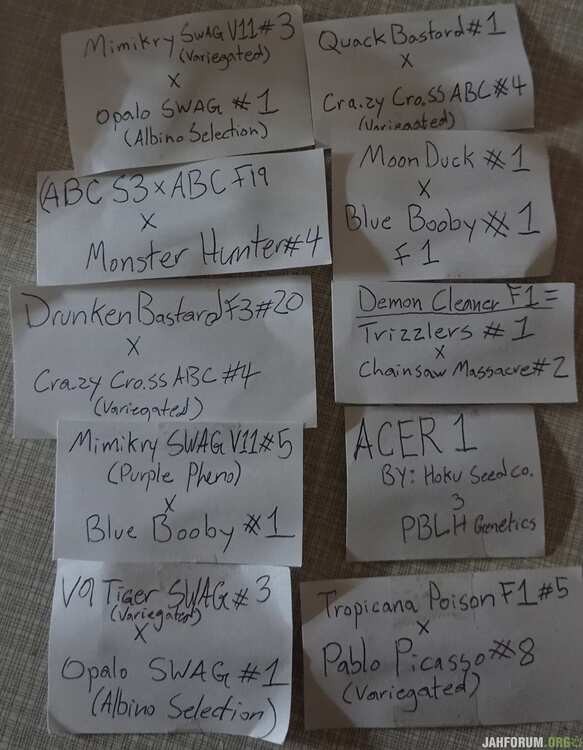 Mimikry SWAG V11#3
(Variegated)
X
Opalo SWAG #1
(Albino Selection)
Quack Bastard#1
X
Cra.zy Cro.ss ABC#4
(Variegated)
(ABC S3 x ABC F19
X
Monster Hunter#4
Moon Duck #1
X
Blue Booby #1
F1
Drunken Bastard F3#20
X
Cra.zy Cro.ss ABC #4
(Variegated)
Demon Cleaner F1=
Trizzlers #1
X
Chainsaw Massacre#2
Mimikry SWAG V11#5
(Purple Pheno)
X
Blue Booby #1
ACER 1
BY: Hoku Seed Co.
3
PBLH Genetics
V9 Tiger SWAG#3
(Variegated)
X
Opalo SWAG #1
(Albino Selection)
Tropicana Poison F1#5
X
Pablo Picasso #8
(Variegated)
JAHFORUM.ORG